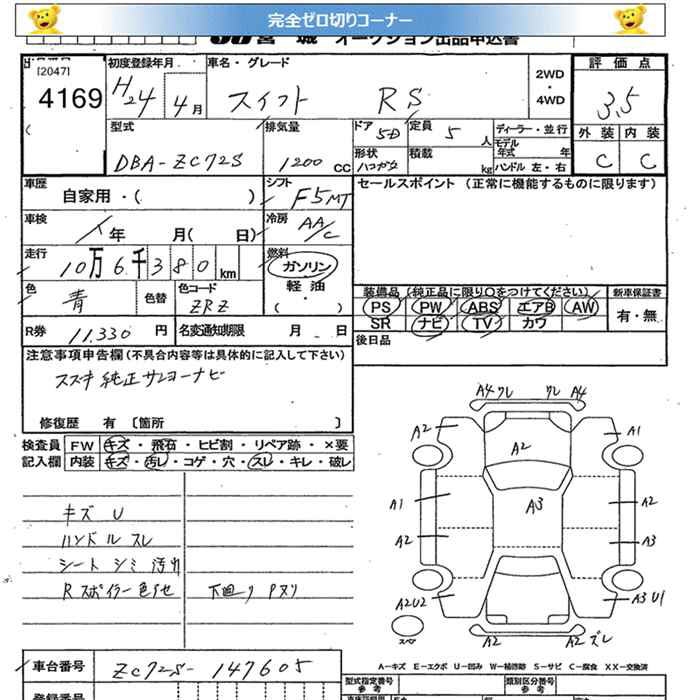 完全ゼロ切りコーナー
宮城 オークション出品申込書
[2047]
4169
初度登録年月
H24 4月
車名・グレード
スイフト RS
2WD
・
4WD
評価点
3.5
外装 内装
C C
型式
DBA-ZC72S
排気量
1200 CC
ドア 5D
定員 5 人
ディーラー・並行
モデル
年式 年
形状 ハコガタ
積載 kg
ハンドル 左・右
車歴
自家用・( )
シフト
F5MT
セールスポイント (正常に機能するものに限ります)
車検
年 月( 日)
冷房
AA/C
走行
10万6千380km
燃料
ガソリン
軽油
・( )
色
青
色替
色コード
ZRZ
装備品(純正品に限り○をつけてください)
新車保証書
PS PW ABS エアB AW
SR ナビ TV カワ
有・無
R券 11,330 円
名変通知期限 月 日
後日品
注意事項申告欄(不具合内容等は具体的に記入して下さい)
スズキ純正サンヨーナビ
修復歴 有 〔箇所 〕
検査員 FW キズ・飛石・ヒビ割・リペア跡・×要
記入欄 内装 キズ・汚レ・コゲ・穴・スレ・キレ・破レ
キズ U
ハンドル スレ
シート シミ 汚れ
Rスポイラー色アセ 下回り Pヌリ
A4 ワレ ワレ A4
A2 A2 A1
A1 A3 A2
A2 A3
A2U2 A3 U1
スペア
A2 A2 ズレ
A-キズ E-エクボ U-凹み W-補修跡 S-サビ C-腐食 XX-交換済
車台番号
ZC72S-147605
型式指定番号
参考
類別区分番号
参考
登録番号